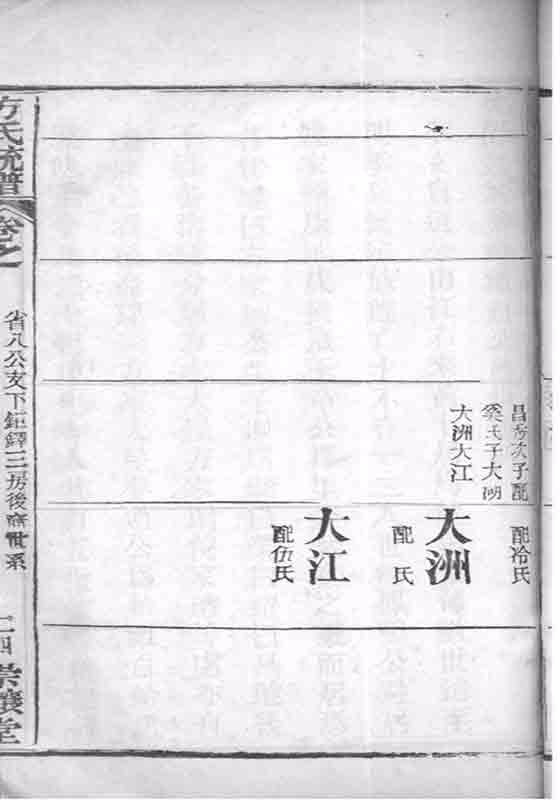 昌方次子配
奚氏子大湖
大洲大江
配冷氏
大洲
配 氏
大江
配伍氏
方氏統譜
卷之一
省八公支下鉅鐸三房後裔世系
二四
崇讓堂